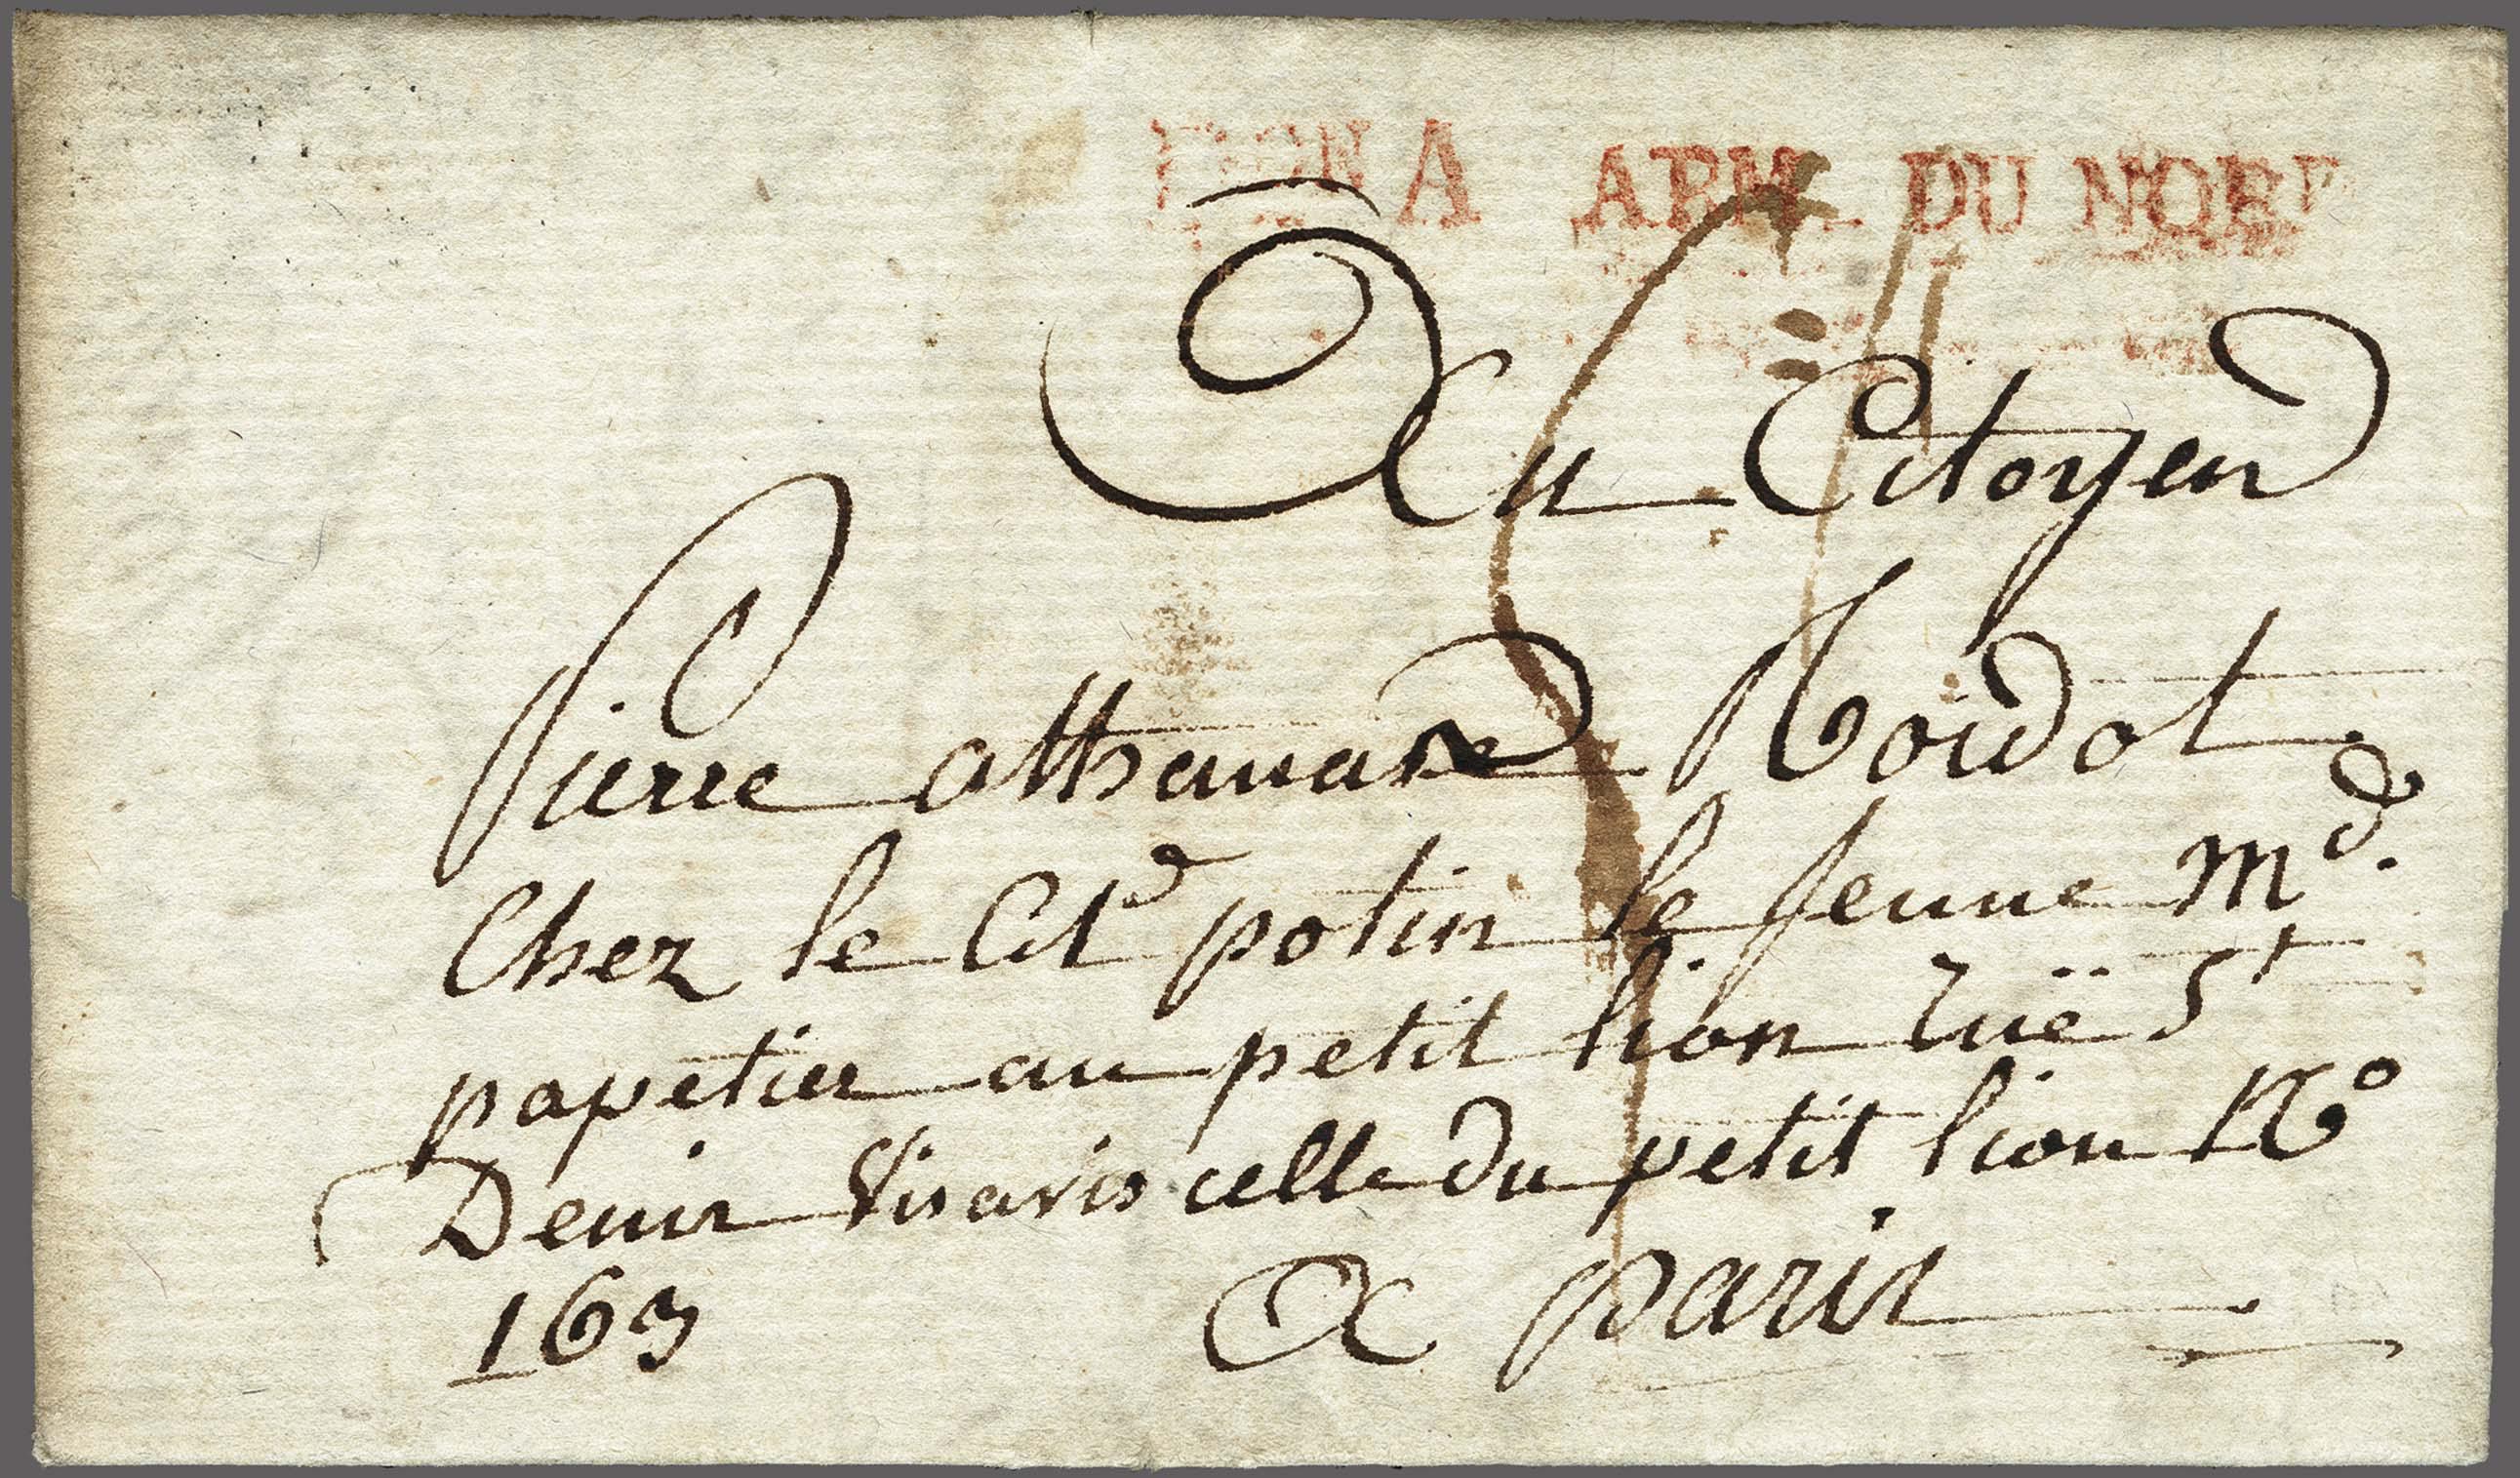 DON A ARM. DU NORD
Au Citoyen
Pierre athanase Roidot
Chez le Cit^d potin le jeune M^d.
papetier au petit lion rüe S^t
Denis Visavis celle du petit lion N^o
163 A paris